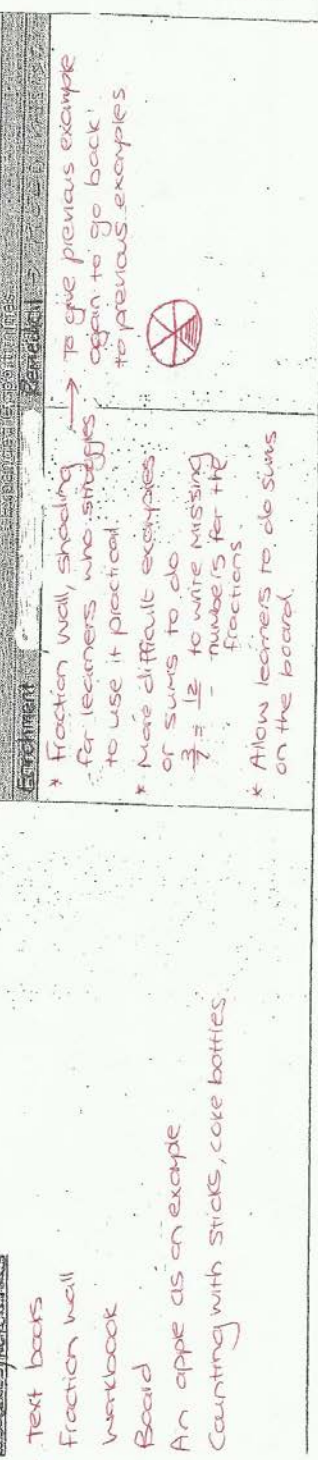 Expanded Opportunities
Text books
Fraction wall
Workbook
Board
An apple as an example
Counting with sticks, coke bottles
Enrichment
* Fraction wall, shading
for learners who struggles
to use it practical
* More difficult examples
or sums to do
3/7 = 12/_ to write missing
numbers for the
fractions.
* Allow learners to do sums
on the board.
Remedial
→ To give previous example
again to go back
to previous examples